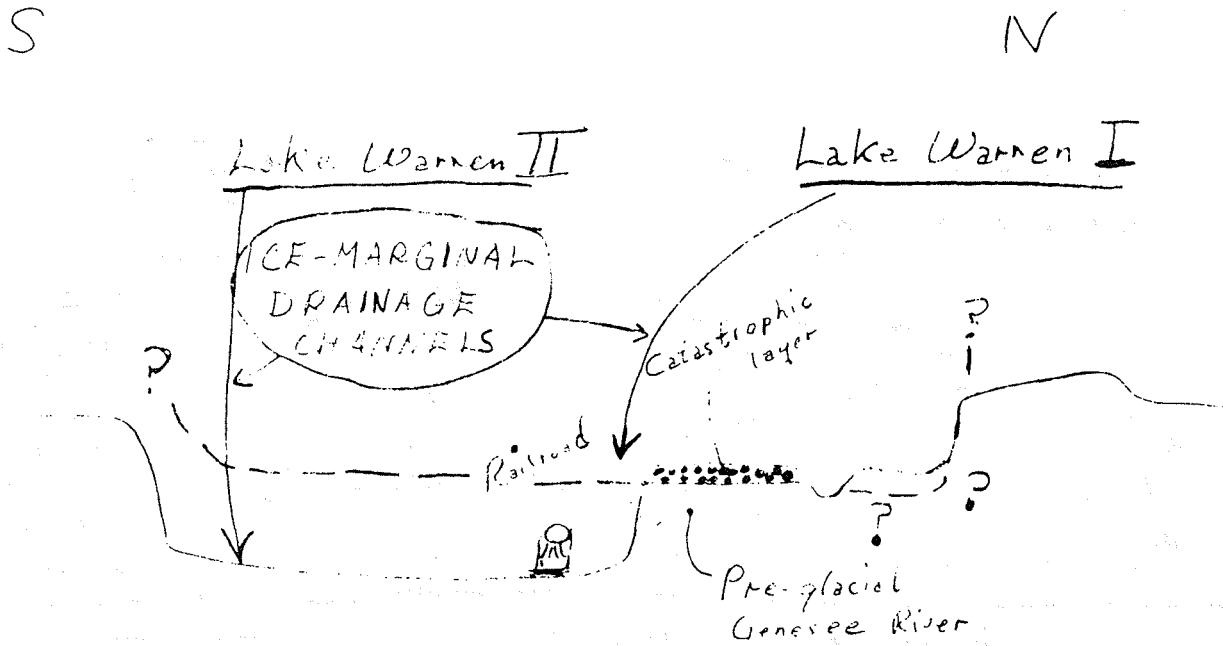 S
N
Lake Warren II
Lake Warren I
ICE-MARGINAL
DRAINAGE
CHANNELS
Catastrophic
layer
?
?
Railroad
?
?
Pre-glacial
Genesee River